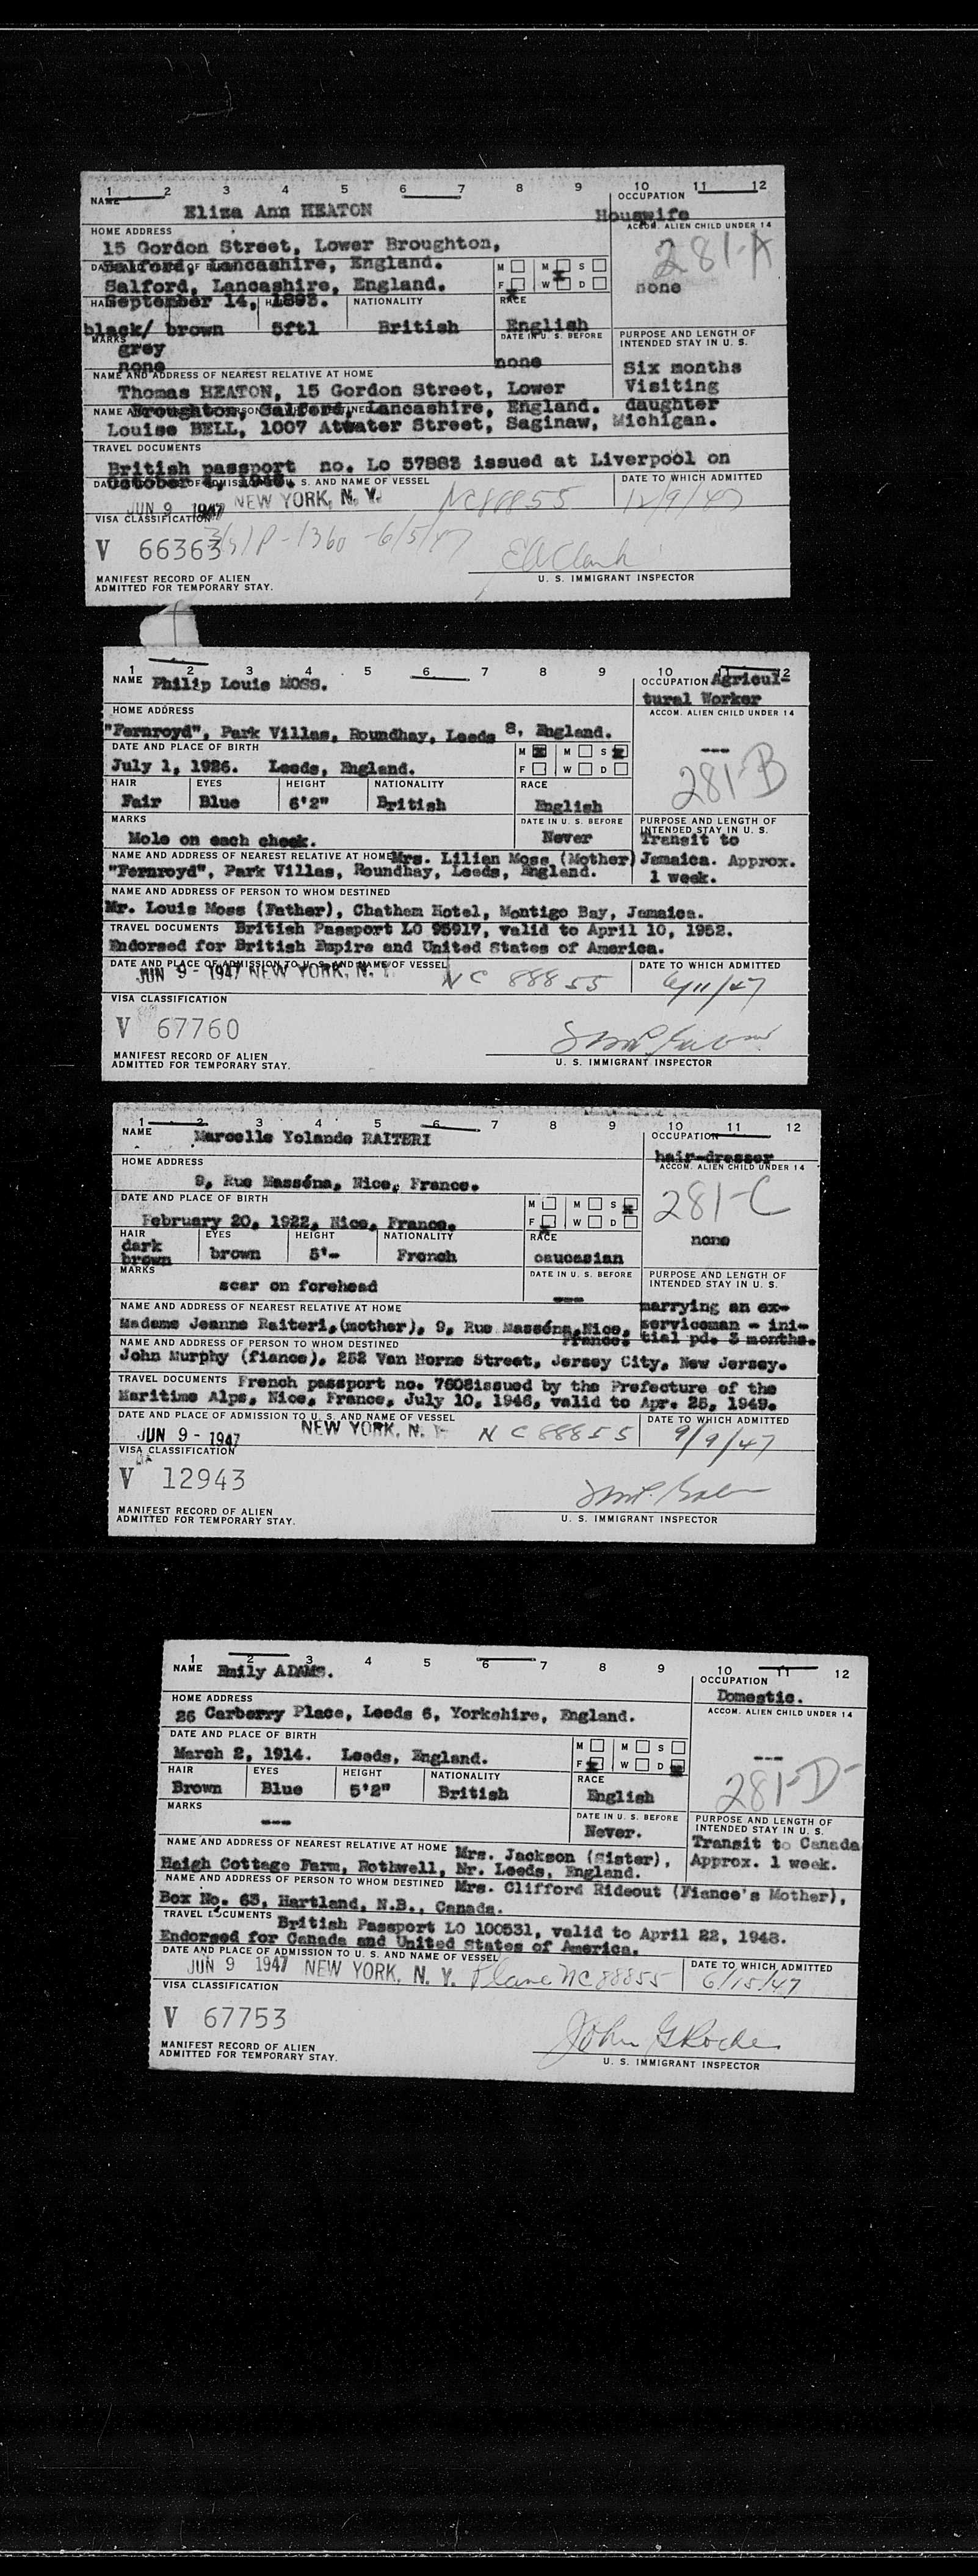 1 2 3 4 5 6 7 8 9 10 11 12
NAME Eliza Ann HEATON
OCCUPATION Housewife
HOME ADDRESS
ACCOM. ALIEN CHILD UNDER 14
15 Gordon Street, Lower Broughton,
281-A
Salford, Lancashire, England.
M M S
Salford, Lancashire, England.
F W D
none
September 14, 1893.
NATIONALITY
RACE
black/ brown 5ft1 British English
MARKS
grey
DATE IN U. S. BEFORE
PURPOSE AND LENGTH OF
INTENDED STAY IN U. S.
none
none
Six months
NAME AND ADDRESS OF NEAREST RELATIVE AT HOME
Visiting
Thomas HEATON, 15 Gordon Street, Lower
Broughton, Salford, Lancashire, England. daughter
Louise BELL, 1007 Atwater Street, Saginaw, Michigan.
TRAVEL DOCUMENTS
British passport no. Lo 57883 issued at Liverpool on
S. AND NAME OF VESSEL
DATE TO WHICH ADMITTED
JUN 9 1947 NEW YORK, N. Y. NC88855 12/9/47
VISA CLASSIFICATION
V 66363
P-1360 -6/5/47
EA Clark
U. S. IMMIGRANT INSPECTOR
MANIFEST RECORD OF ALIEN
ADMITTED FOR TEMPORARY STAY.
1 2 3 4 5 6 7 8 9 10 11 12
NAME Philip Louis MOSS.
OCCUPATION Agricul-
tural Worker
HOME ADDRESS
ACCOM. ALIEN CHILD UNDER 14
"Fernroyd", Park Villas, Roundhay, Leeds 8, England.
DATE AND PLACE OF BIRTH
M M S
---
July 1, 1926. Leeds, England.
F W D
281-B
HAIR EYES HEIGHT NATIONALITY RACE
Fair Blue 6'2" British English
MARKS
DATE IN U. S. BEFORE
PURPOSE AND LENGTH OF
INTENDED STAY IN U. S.
Mole on each cheek. Never Transit to
NAME AND ADDRESS OF NEAREST RELATIVE AT HOME Mrs. Lilian Moss (Mother) Jamaica. Approx.
"Fernroyd", Park Villas, Roundhay, Leeds, England. 1 week.
NAME AND ADDRESS OF PERSON TO WHOM DESTINED
Mr. Louis Moss (Father), Chatham Hotel, Montigo Bay, Jamaica.
TRAVEL DOCUMENTS British Passport LO 95917, valid to April 10, 1952.
Endorsed for British Empire and United States of America.
DATE AND PLACE OF ADMISSION TO U. S. AND NAME OF VESSEL
DATE TO WHICH ADMITTED
JUN 9 - 1947 NEW YORK, N. Y. NC 88855 6/11/47
VISA CLASSIFICATION
V 67760
MANIFEST RECORD OF ALIEN
ADMITTED FOR TEMPORARY STAY.
U. S. IMMIGRANT INSPECTOR
1 2 3 4 5 6 7 8 9 10 11 12
NAME Marcelle Yolande RAITERI
OCCUPATION
hair-dresser
HOME ADDRESS
ACCOM. ALIEN CHILD UNDER 14
9, Rue Masséna, Nice, France.
281-C
DATE AND PLACE OF BIRTH
M M S
February 20, 1922, Nice, France.
F W D
HAIR EYES HEIGHT NATIONALITY RACE
none
dark
brown brown 5'- French caucasian
MARKS
DATE IN U. S. BEFORE
PURPOSE AND LENGTH OF
INTENDED STAY IN U. S.
scar on forehead
---
NAME AND ADDRESS OF NEAREST RELATIVE AT HOME
marrying an ex-
Madame Jeanne Raiteri,(mother), 9, Rue Masséna,Nice, serviceman - ini-
France. tial pd. 3 months.
NAME AND ADDRESS OF PERSON TO WHOM DESTINED
John Murphy (fiance), 252 Van Horne Street, Jersey City, New Jersey.
TRAVEL DOCUMENTS French passport no. 7608issued by the Prefecture of the
Maritime Alps, Nice, France, July 10, 1946, valid to Apr. 25, 1949.
DATE AND PLACE OF ADMISSION TO U. S. AND NAME OF VESSEL
DATE TO WHICH ADMITTED
JUN 9 - 1947 NEW YORK, N. Y. NC88855 9/9/47
VISA CLASSIFICATION
V 12943
MANIFEST RECORD OF ALIEN
ADMITTED FOR TEMPORARY STAY.
U. S. IMMIGRANT INSPECTOR
1 2 3 4 5 6 7 8 9 10 11 12
NAME Emily ADAMS.
OCCUPATION
Domestic.
HOME ADDRESS
ACCOM. ALIEN CHILD UNDER 14
26 Carberry Place, Leeds 6, Yorkshire, England.
DATE AND PLACE OF BIRTH
M M S
March 2, 1914. Leeds, England.
F W D
---
HAIR EYES HEIGHT NATIONALITY RACE
281-D-
Brown Blue 5'2" British English
MARKS
---
DATE IN U. S. BEFORE
PURPOSE AND LENGTH OF
INTENDED STAY IN U. S.
Never. Transit to Canada
NAME AND ADDRESS OF NEAREST RELATIVE AT HOME Mrs. Jackson (Sister), Approx. 1 week.
Haigh Cottage Farm, Rothwell, Nr. Leeds, England.
NAME AND ADDRESS OF PERSON TO WHOM DESTINED Mrs. Clifford Rideout (Fiance's Mother),
Box No. 63, Hartland, N.B., Canada.
TRAVEL DOCUMENTS British Passport LO 100531, valid to April 22, 1948.
Endorsed for Canada and United States of America.
DATE AND PLACE OF ADMISSION TO U. S. AND NAME OF VESSEL
DATE TO WHICH ADMITTED
JUN 9 1947 NEW YORK, N. Y. Plane NC88855 6/15/47
VISA CLASSIFICATION
V 67753
John G Roche
MANIFEST RECORD OF ALIEN
ADMITTED FOR TEMPORARY STAY.
U. S. IMMIGRANT INSPECTOR